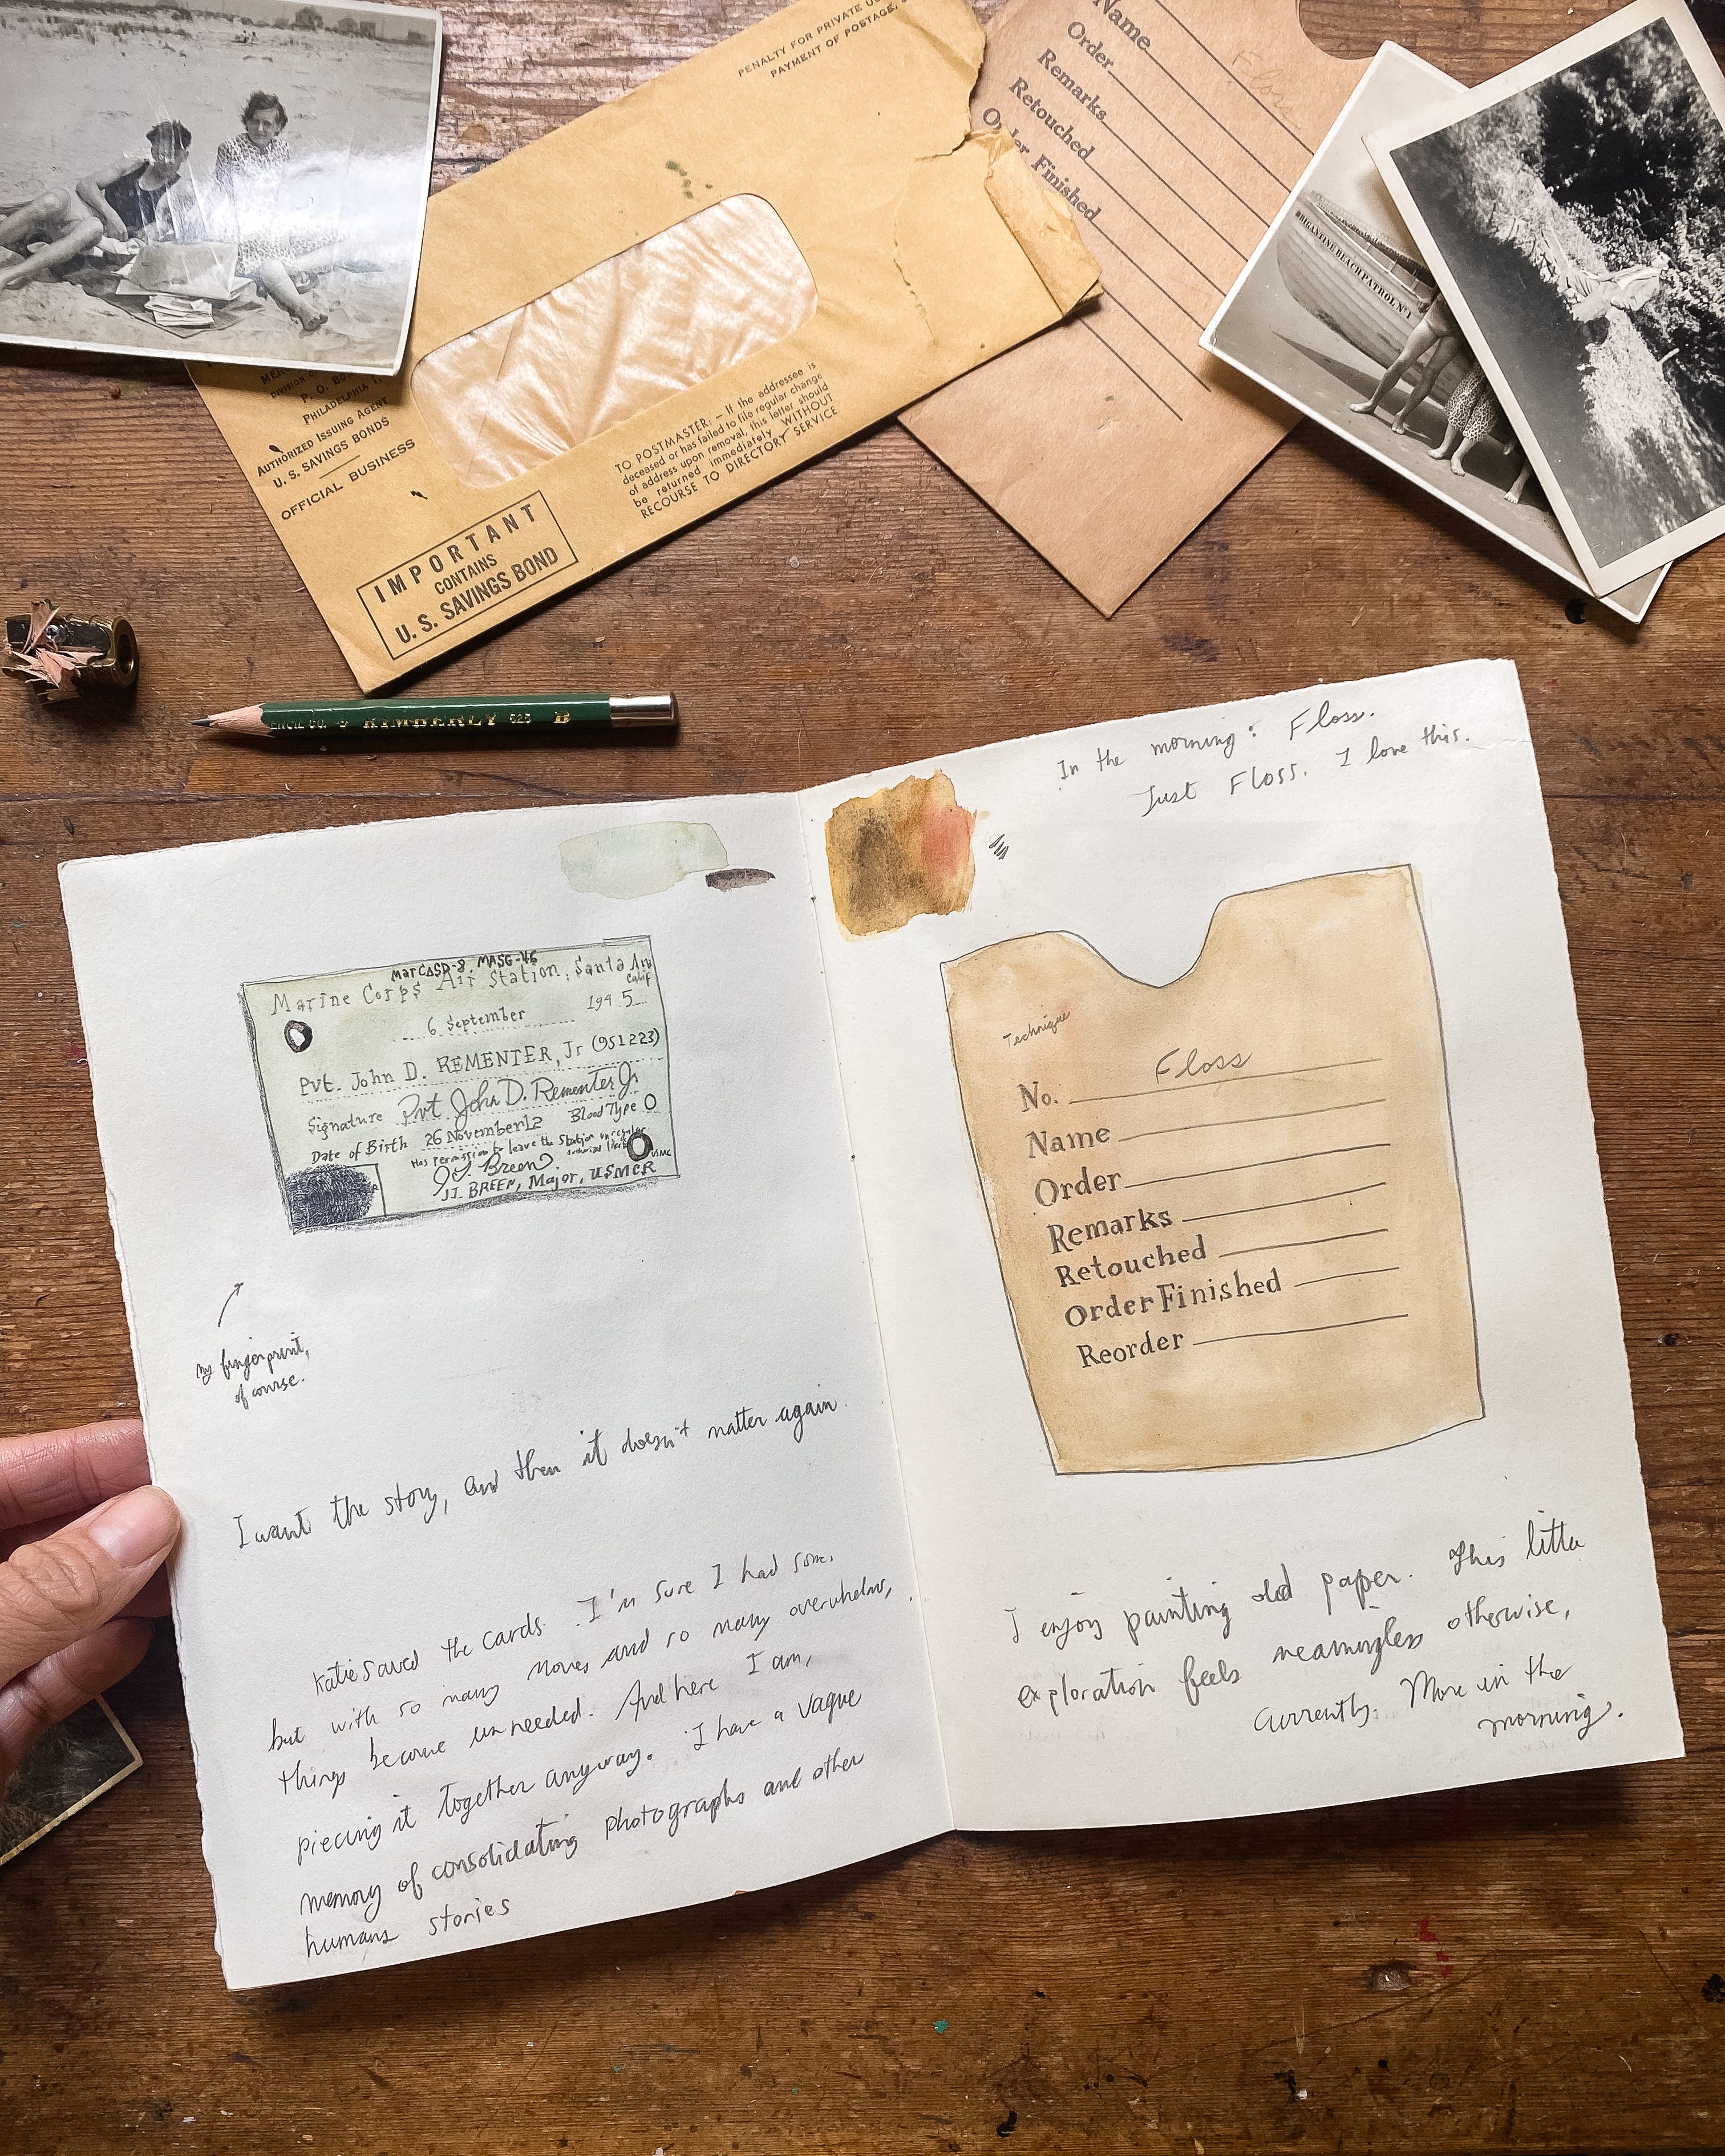 PENALTY FOR PRIVATE
PAYMENT OF POSTAGE,
DIVISION
P. O.
PHILADELPHIA
AUTHORIZED ISSUING AGENT
U. S. SAVINGS BONDS
OFFICIAL BUSINESS
TO POSTMASTER: – If the addressee is
deceased or has failed to file regular change
of address upon removal, this letter should
be returned immediately WITHOUT
RECOURSE TO DIRECTORY SERVICE
IMPORTANT
CONTAINS
U. S. SAVINGS BOND
Floss
Name
Order
Remarks
Retouched
Order Finished
BRIGANTINE BEACH PATROL Nº 1
ENCIL CO. KIMBERLY 525 B
MarCASD-8, MASG-46
Marine Corps Air Station, Santa Ana
Calif
6 September 1945
Pvt. John D. REMENTER, Jr (951223)
Signature Pvt John D. Rementer Jr
Date of Birth 26 November 12 Blood Type O
Has Permission to leave the Station on regular
authorized liberty
J.J. Breen USMC
JJ. BREEN, Major, USMCR
my fingerprint,
of course.
I want the story, and then it doesn't matter again.
Katie saved the cards. I'm sure I had some,
but with so many moves and so many overwhelms,
things become unneeded. And here I am,
piecing it together anyway. I have a vague
memory of consolidating photographs and other
humans stories
In the morning: Floss.
Just Floss. I love this.
Technique
No. Floss
Name
Order
Remarks
Retouched
Order Finished
Reorder
I enjoy painting old paper. This little
exploration feels meaningless otherwise,
currently. More in the
morning.